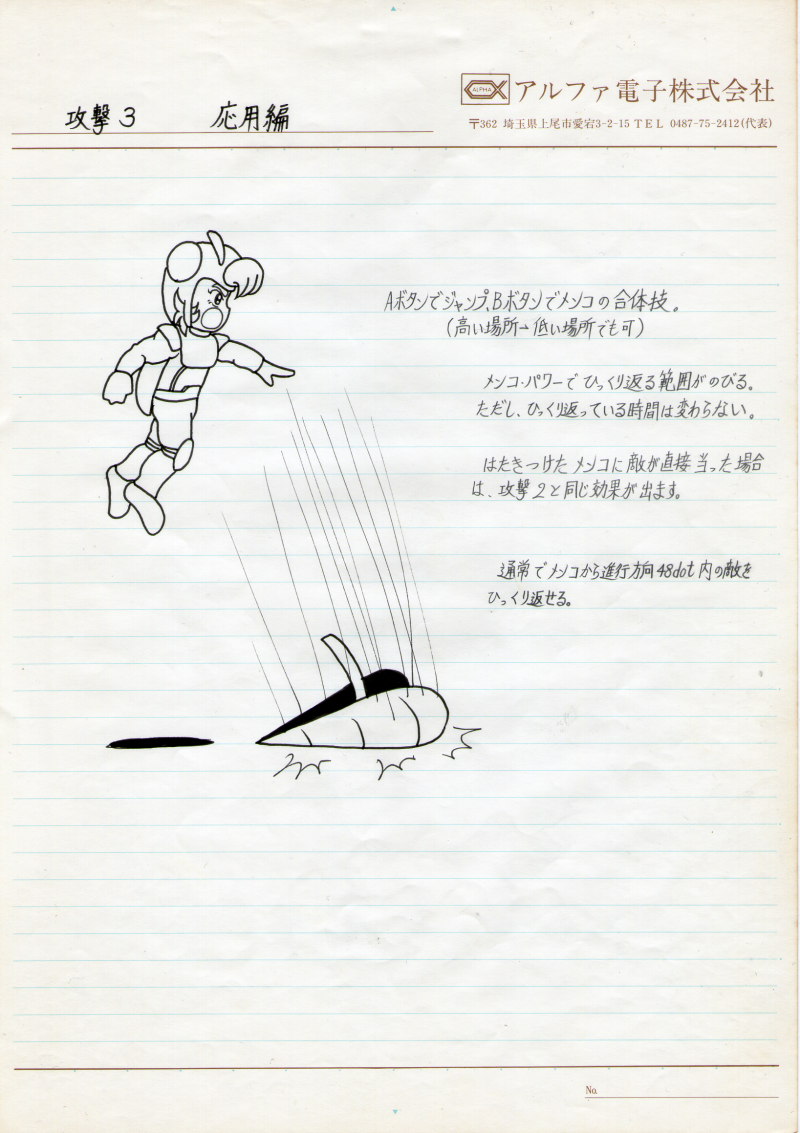 ALPHA アルファ電子株式会社
攻撃3 応用編
〒362 埼玉県上尾市愛宕3-2-15 TEL 0487-75-2412(代表)
Aボタンでジャンプ、Bボタンでメンコの合体技。
(高い場所→低い場所でも可)
メンコ・パワーでひっくり返る範囲がのびる。
ただし、ひっくり返っている時間は変わらない。
はたきつけたメンコに敵が直接当った場合
は、攻撃2と同じ効果が出ます。
通常でメンコから進行方向48dot内の敵を
ひっくり返せる。
No.